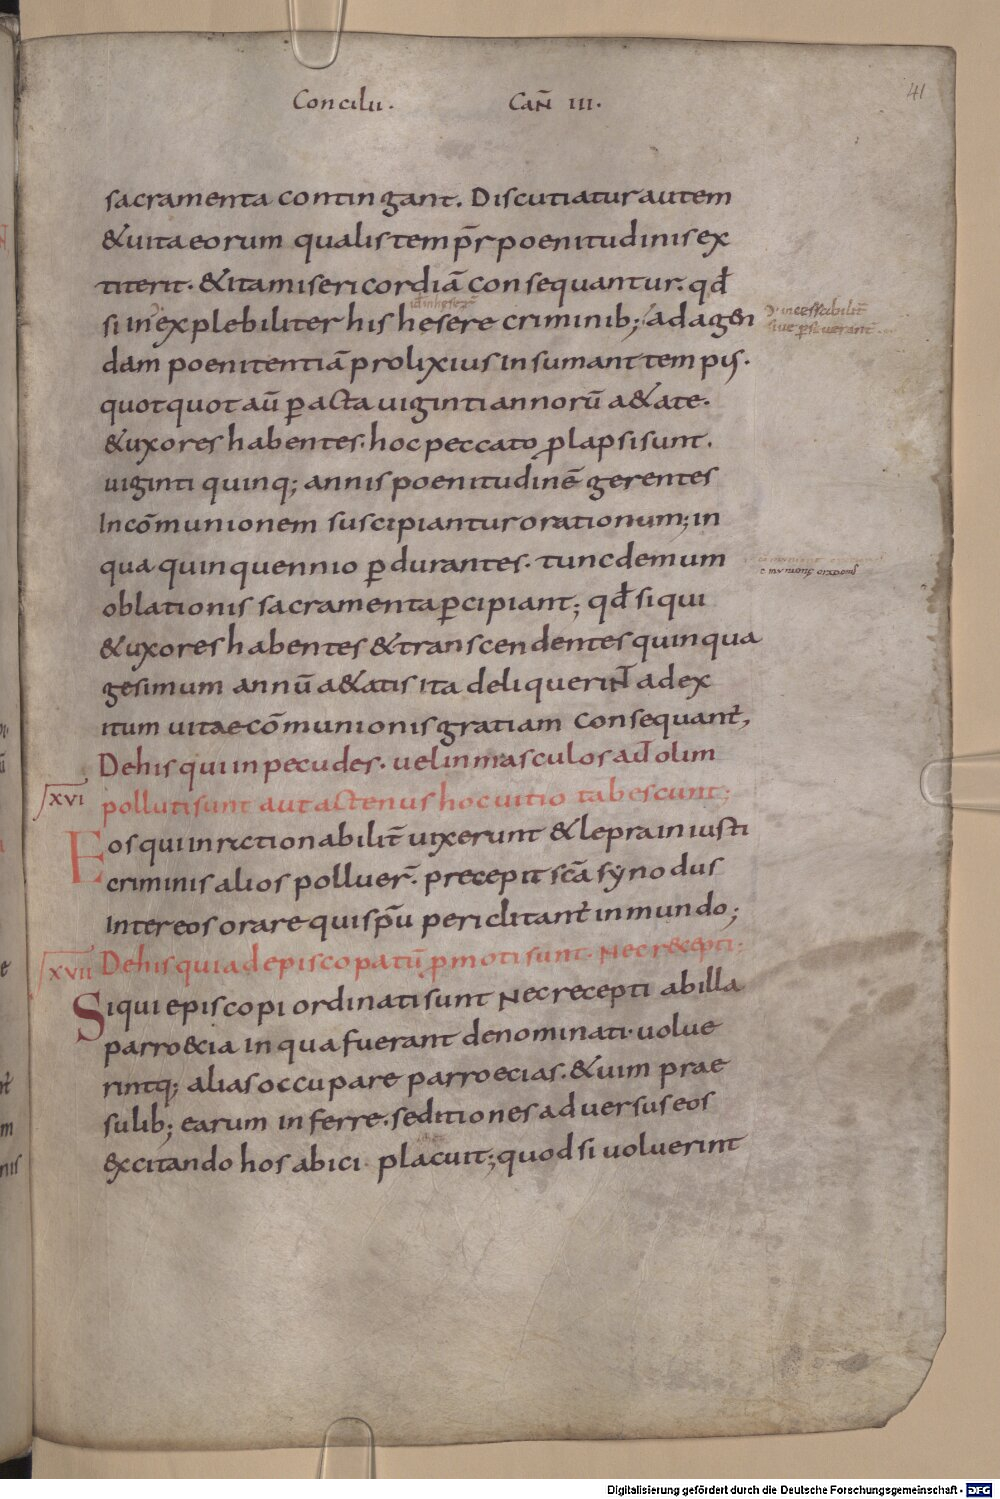 Concilii. Cañ III.
41
sacramenta contingant. Discutiatur autem
& uita eorum qualis temp̄r poenitudinis ex
titerit. & ita misericordiā consequantur. qđ
si inexplebiliter his hesere criminib; ad agen
dam poenitentiā prolixius insumant tempis.
quotquot aū ꝑacta uiginti annorū a&ate.
& uxores habentes. hoc peccato ꝓlapsi sunt.
uiginti quinq; annis poenitudinē gerentes
In cōmunionem suscipiantur orationum; in
qua quinquennio ꝑdurantes. tunc demum
oblationis sacramenta ꝑcipiant; qđ si qui
& uxores habentes & transcendentes quinqua
gesimum annū a&atis ita deliquerin̄t ad ex
itum uitae cōmunionis gratiam consequant̄,
De his qui in pecudes. uel in masculos aut olim
XVI
polluti sunt aut actenus hoc uitio tabescunt;
Eos qui inrectionabilit̄ uixerunt & lepra iniusti
criminis alios polluer̄. precepit sc̄a synodus
Inter eos orare qui sp̄u periclitant̄ in mundo;
XVII
De his qui ad episcopatū ꝓmoti sunt. Nec rec&pti.
Si qui episcopi ordinati sunt Nec recepti ab illa
parro&cia in qua fuerant denominati. uolue
rintq; alias occupare parroecias. & uim prae
sulib; earum inferre. seditiones aduersus eos
excitando hos abici placuit; quod si uoluerint
Digitalisierung gefördert durch die Deutsche Forschungsgemeinschaft - DFG